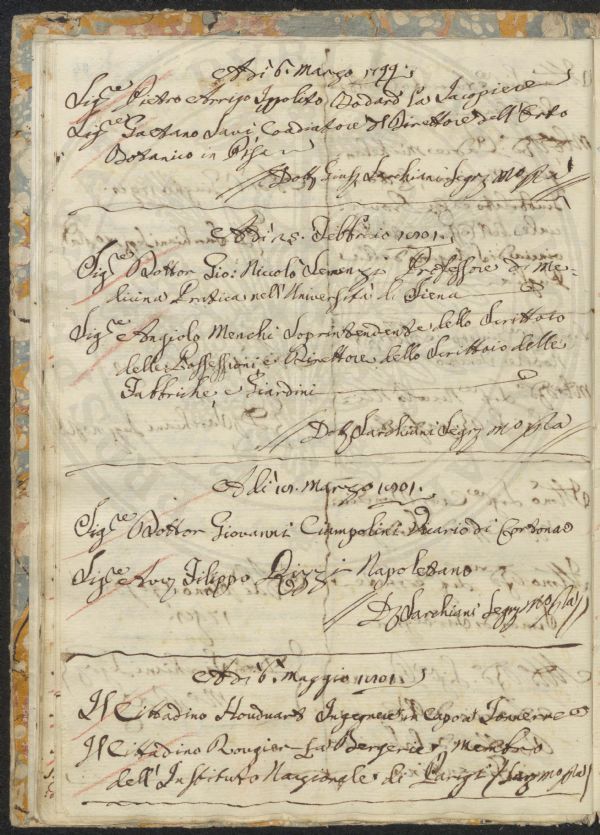 Adi 6. Marzo 1799.
Sig.re Pietro Arrigo Ippolito Bodard la Jacopiere
Sig.re Gaetano Savi Coadiutore del Direttore dell'Orto
Botanico in Pisa
Dott. Gius. Sarchiani Segr. mo p.ria
Adi 25. Febbraio 1801.
Sig.re Dottor Gio: Niccolò Semenzi Professore di Me-
dicina Pratica nell'Università di Siena
Sig.re Angiolo Menchi Soprintendente dello Scrittoio
delle Possessioni, e Direttore dello Scrittoio delle
Fabbriche e Giardini
D. Sarchiani Segr. mo p.ria
Adi Marzo 1801.
Sig.re Dottor Giovanni Ciampolini Vicario di Cortona
Sig.re Avv. Filippo Rizzi Napoletano
D. Sarchiani Segr. mo p.ria
Adi 6. Maggio 1801.
Il Cittadino Houduart Ingegnere in Capo
Il Cittadino Rougier-La Bergerie, membro
dell'Instituto Nazionale di Parigi